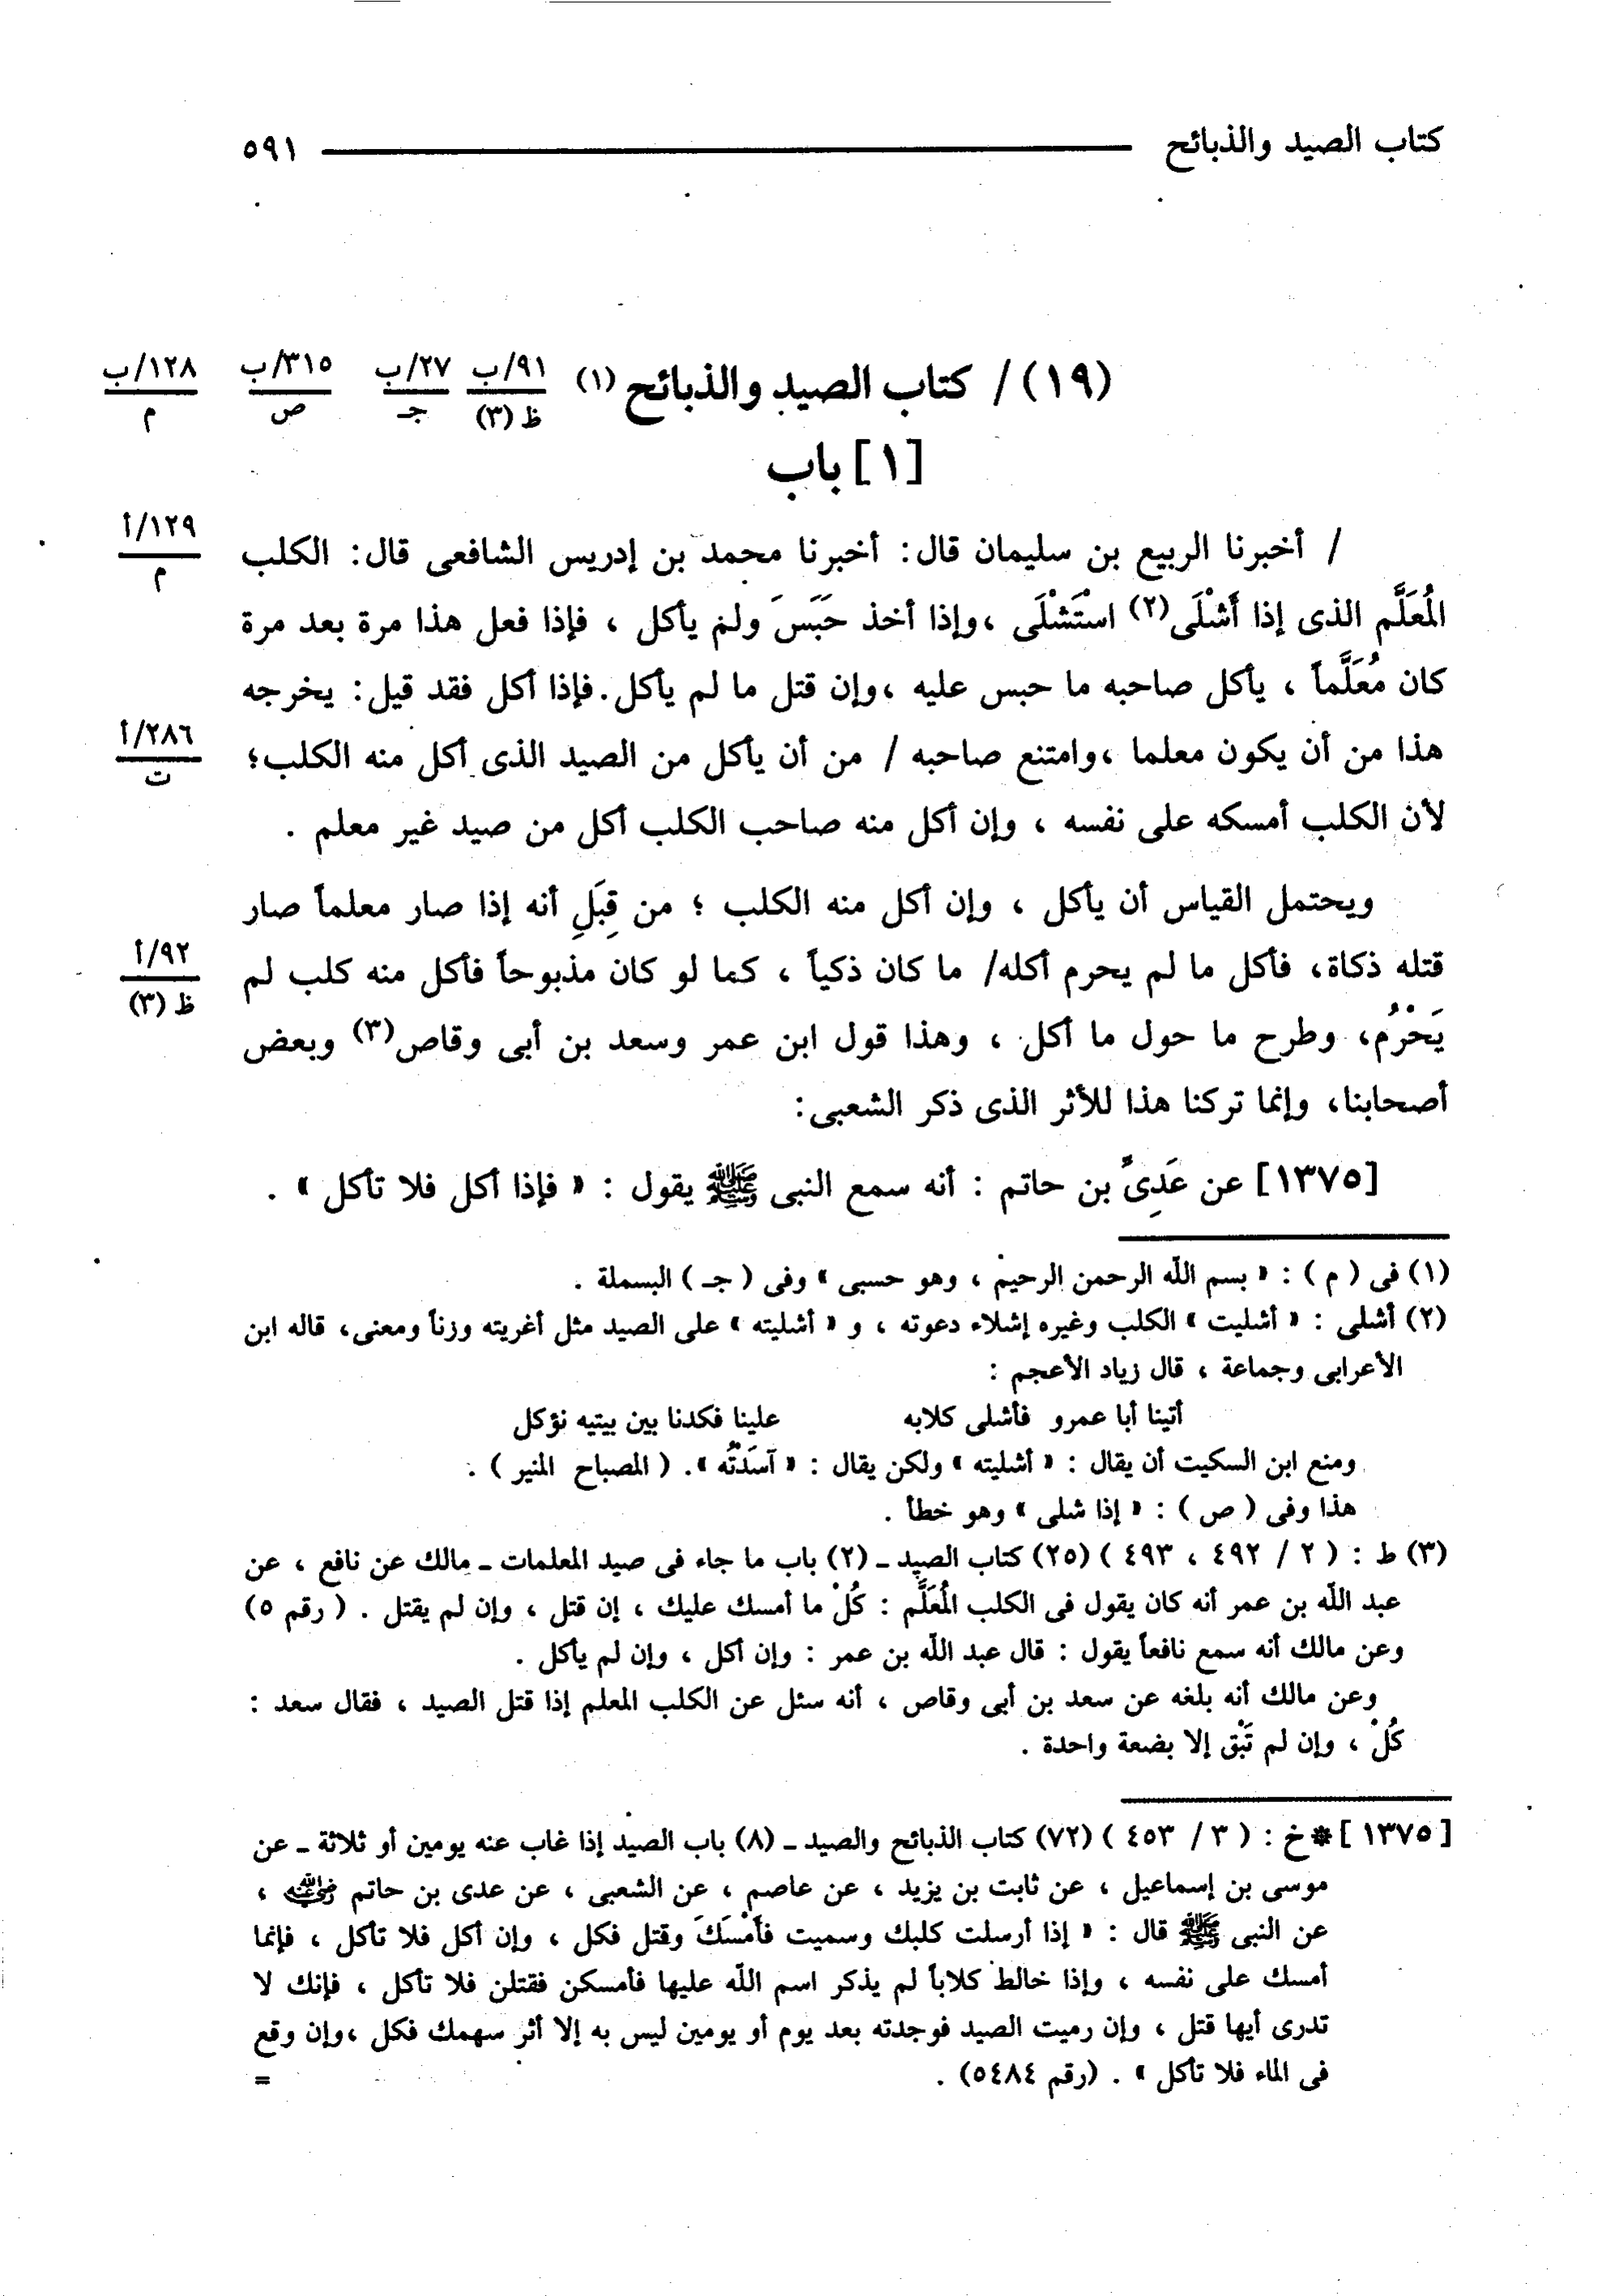 كتاب الصيد والذبائح ٥٩١
(١٩) / كتاب الصيد والذبائح (١) ٩١/ب ظ (٣) ٢٧/ب جـ ٣١٥/ب ص ١٢٨/ب م
[١] باب
/ أخبرنا الربيع بن سليمان قال: أخبرنا محمد بن إدريس الشافعى قال: الكلب ١٢٩/أ م
المُعَلَّم الذى إذا أَشْلَى(٢) اسْتَشْلَى ،وإذا أخذ حَبَسَ ولم يأكل ، فإذا فعل هذا مرة بعد مرة
كان مُعَلَّماً ، يأكل صاحبه ما حبس عليه ،وإن قتل ما لم يأكل. فإذا أكل فقد قيل: يخرجه
هذا من أن يكون معلما ،وامتنع صاحبه / من أن يأكل من الصيد الذى أكل منه الكلب؛ ٢٨٦/أ ت
لأن الكلب أمسكه على نفسه ، وإن أكل منه صاحب الكلب أكل من صيد غير معلم .
ويحتمل القياس أن يأكل ، وإن أكل منه الكلب ؛ من قِبَلِ أنه إذا صار معلماً صار
قتله ذكاة، فأكل ما لم يحرم أكله/ ما كان ذكياً ، كما لو كان مذبوحاً فأكل منه كلب لم ٩٢/أ ظ (٣)
يَحْرُم، وطرح ما حول ما أكل ، وهذا قول ابن عمر وسعد بن أبى وقاص(٣) وبعض
أصحابنا، وإنما تركنا هذا للأثر الذى ذكر الشعبى:
[١٣٧٥] عن عَدِىِّ بن حاتم : أنه سمع النبى ﷺ يقول : « فإذا أكل فلا تأكل » .
(١) فى ( م ) : « بسم اللّه الرحمن الرحيم ، وهو حسبى » وفى ( جـ ) البسملة .
(٢) أشلى : « أشليت » الكلب وغيره إشلاء دعوته ، و « أشليته » على الصيد مثل أغريته وزناً ومعنى، قاله ابن
الأعرابى وجماعة ، قال زياد الأعجم :
أتينا أبا عمرو فأشلى كلابه علينا فكدنا بين بيتيه نؤكل
ومنع ابن السكيت أن يقال : « أشليته » ولكن يقال : « آسَدْتُه ». ( المصباح المنير ) .
هذا وفى ( ص ) : « إذا شلى » وهو خطأ .
(٣) ط : ( ٢ / ٤٩٢ ، ٤٩٣ ) (٢٥) كتاب الصيد ـ (٢) باب ما جاء فى صيد المعلمات ـ مالك عن نافع ، عن
عبد اللّه بن عمر أنه كان يقول فى الكلب المُعَلَّم : كُلْ ما أمسك عليك ، إن قتل ، وإن لم يقتل . ( رقم ٥)
وعن مالك أنه سمع نافعاً يقول : قال عبد اللّه بن عمر : وإن أكل ، وإن لم يأكل .
وعن مالك أنه بلغه عن سعد بن أبى وقاص ، أنه سئل عن الكلب المعلم إذا قتل الصيد ، فقال سعد :
كُلْ ، وإن لم تَبْق إلا بضعة واحدة .
[١٣٧٥] * خ : ( ٣ / ٤٥٣ ) (٧٢) كتاب الذبائح والصيد ـ (٨) باب الصيد إذا غاب عنه يومين أو ثلاثة ـ عن
موسى بن إسماعيل ، عن ثابت بن يزيد ، عن عاصم ، عن الشعبى ، عن عدى بن حاتم رضي الله عنه ،
عن النبى ﷺ قال : « إذا أرسلت كلبك وسميت فأَمْسَكَ وقتل فكل ، وإن أكل فلا تأكل ، فإنما
أمسك على نفسه ، وإذا خالط كلاباً لم يذكر اسم اللّه عليها فأمسكن فقتلن فلا تأكل ، فإنك لا
تدرى أيها قتل ، وإن رميت الصيد فوجدته بعد يوم أو يومين ليس به إلا أثر سهمك فكل ،وإن وقع
فى الماء فلا تأكل » . (رقم ٥٤٨٤) . =